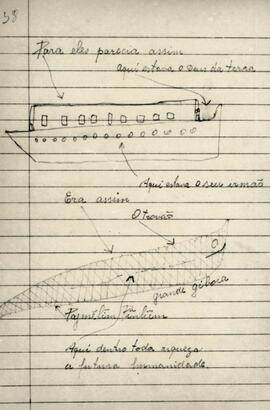 38
Para eles parecia assim
Aqui estava o seus da terra
Aqui estava o seu irmão
Era assim
O trovão
grande Gibóia
Aqui dentro toda riqueza
a futura humanidade